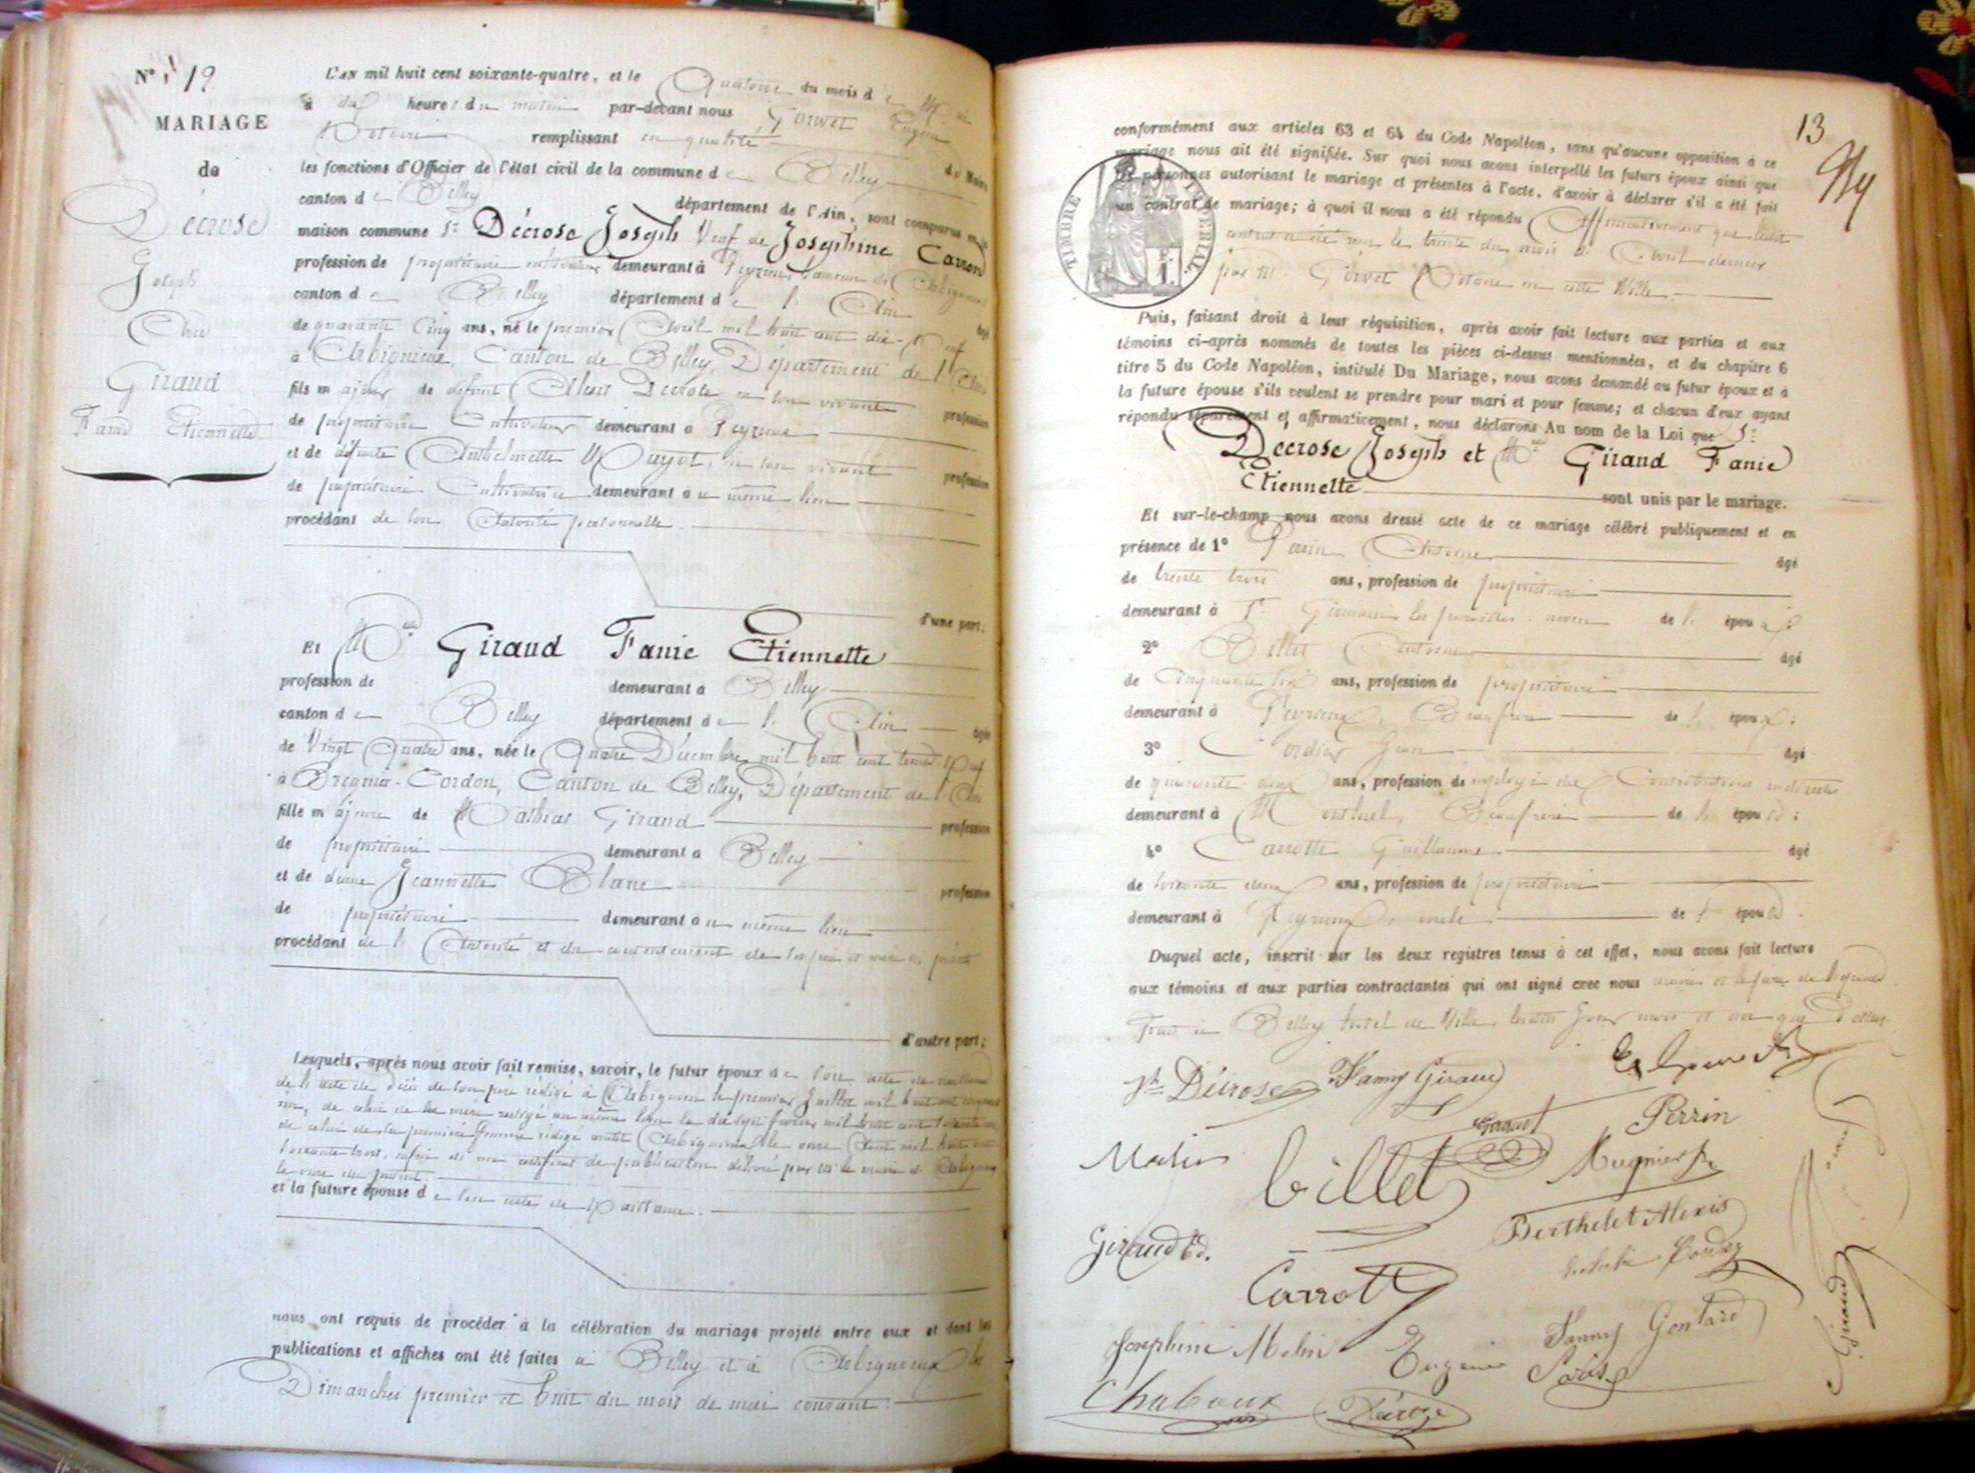 N° 19
MARIAGE
de
Décrose
Joseph
Avec
Giraud
Fanie Etiennette
L'AN mil huit cent soixante-quatre, et le Quatorze du mois de Mai
à dix heures du matin par-devant nous Gorvet Eugène
Notaire remplissant en qualité du Maire
les fonctions d'Officier de l'état civil de la commune de Belley
canton de Belley département de l'Ain, sont comparus en la
maison commune Sr Décrose Joseph Veuf de Josephine Carron
profession de propriétaire cultivateur demeurant à Peyzieu, hameau d'Arbignieu
canton de Belley département de l'Ain âgé
de quarante Cinq ans, né le premier Avril mil huit cent dix-Neuf
à Arbignieu, Canton de Belley, Département de l'Ain
fils majeur de défunt Albert Décrose en son vivant profession
de propriétaire Cultivateur demeurant à Peyzieu
et de défunte Anthelmette Nuguet, en son vivant profession
de propriétaire Cultivatrice demeurant au même lieu
procédant de son Autorité personnelle.
d'une part;
Et Mlle Giraud Fanie Etiennette
profession de demeurant à Belley
canton de Belley département de l'Ain âgée
de Vingt Quatre ans, née le Quatre Décembre mil huit cent trente-Neuf
à Brégnier-Cordon, Canton de Belley, Département de l'Ain
fille majeure de Mathias Giraud profession
de propriétaire demeurant à Belley
et de dame Jeannette Blanc profession
de propriétaire demeurant au même lieu
procédant de l'Autorité et du consentement de ses père et mère ici présents
d'autre part;
Lesquels, après nous avoir fait remise, savoir, le futur époux de son acte de naissance
de l'acte de décès de son père rédigé à Arbignieu le premier Juillet mil huit cent
de celui de sa mère rédigé au même lieu le dix sept février mil huit cent soixante
de celui de sa première femme rédigé audit Arbignieu le onze Août mil huit cent
soixante trois, enfin de un certificat de publication délivré par M. le maire d'Arbignieu
le onze du présent.
et la future épouse de son acte de Naissance.
nous ont requis de procéder à la célébration du mariage projeté entre eux et dont les
publications et affiches ont été faites à Belley et à Arbignieu les
Dimanches premier et huit du mois de mai courant.
13
conformément aux articles 63 et 64 du Code Napoléon, sans qu'aucune opposition à ce
mariage nous ait été signifiée. Sur quoi nous avons interpellé les futurs époux ainsi que
les personnes autorisant le mariage et présentes à l'acte, d'avoir à déclarer s'il a été fait
un contrat de mariage; à quoi il nous a été répondu Affirmativement que ledit
contrat a été reçu le trente du mois d'Avril dernier
par M. Gorvet Notaire en cette Ville.
TIMBRE IMPÉRIAL.
Puis, faisant droit à leur réquisition, après avoir fait lecture aux parties et aux
témoins ci-après nommés de toutes les pièces ci-dessus mentionnées, et du chapitre 6
titre 5 du Code Napoléon, intitulé Du Mariage, nous avons demandé au futur époux et à
la future épouse s'ils veulent se prendre pour mari et pour femme; et chacun d'eux ayant
répondu séparément et affirmativement, nous déclarons Au nom de la Loi que Sr
Decrose Joseph et Mlle Giraud Fanie
Etiennette sont unis par le mariage.
Et sur-le-champ nous avons dressé acte de ce mariage célébré publiquement et en
présence de 1° Perrin Antoine âgé
de trente trois ans, profession de propriétaire
demeurant à St Germain les paroisses, de l'époux
2° Billet Antoine âgé
de Cinquante six ans, profession de propriétaire
demeurant à Peyzieu, Beaufrère de l'époux;
3° Cordier Jean âgé
de quarante deux ans, profession d'employé des Contributions indirectes
demeurant à Montluel, Beaufrère de l'époux;
4° Carrotte Guillaume âgé
de soixante deux ans, profession de propriétaire
demeurant à Peyzieu, oncle de l'époux.
Duquel acte, inscrit sur les deux registres tenus à cet effet, nous avons fait lecture
aux témoins et aux parties contractantes qui ont signé avec nous
Fait à Belley hotel de Ville, lesdits jour mois et an que dessus.
Jh Décrose Fany Giraud
Giraud Perrin
Molin billet Mugnier
Giraud Berthelet Alexis
Carrott
Josephine Molin Eugénie Fanny Gontard
Giraud
Chaboux Décrose